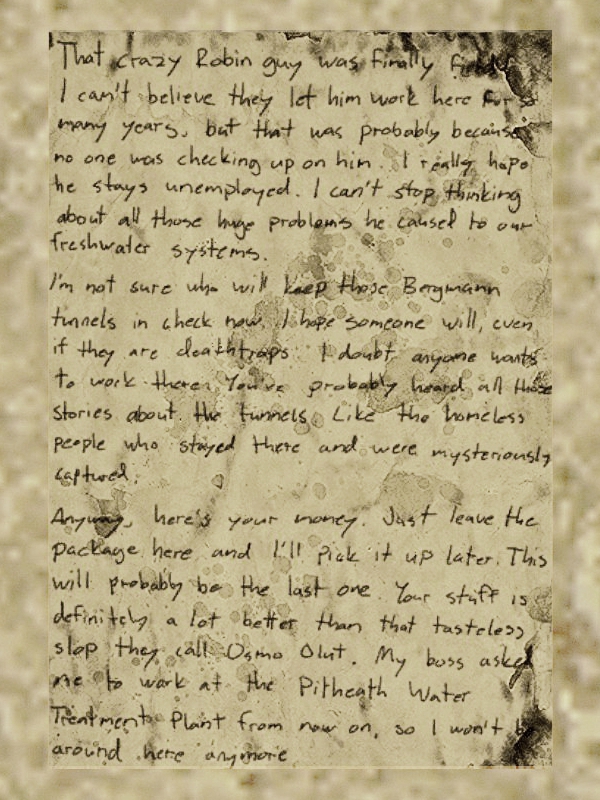 That crazy Robin guy was finally
I can't believe they let him work here for so
many years, but that was probably because
no one was checking up on him. I really hope
he stays unemployed. I can't stop thinking
about all those huge problems he caused to our
freshwater systems.
I'm not sure who will keep those Bergmann
tunnels in check now. I hope someone will, even
if they are deathtraps. I doubt anyone wants
to work there. You've probably heard all those
stories about the tunnels. Like the homeless
people who stayed there and were mysteriously
captured.
Anyway, here's your money. Just leave the
package here and I'll pick it up later. This
will probably be the last one. Your stuff is
definitely a lot better than that tasteless
slop they call Osmo Olut. My boss asked
me to work at the Pitheath Water
Treatment Plant from now on, so I won't be
around here anymore